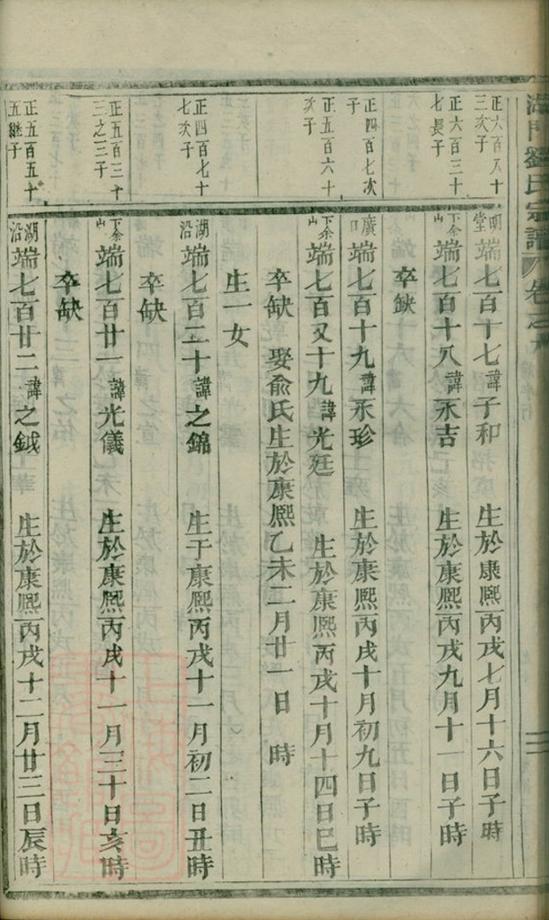 劉氏宗譜 卷之
正六百八十三次子
明堂 端七百十七諱子和 生於康熙丙戌七月十六日子時
正六百三十七長子
下余山 端七百十八諱永吉 生於康熙丙戌九月十一日子時
卒缺
正四百七次子
廣口 端七百十九諱永珍 生於康熙丙戌十月初九日子時
正五百六十次子
下余山 端七百又十九諱光廷 生於康熙丙戌十月十四日巳時
卒缺 娶俞氏生於康熙乙未二月廿一日 時
生一女
正四百七十七次子
湖沿 端七百二十諱之錦 生于康熙丙戌十一月初二日丑時
卒缺
正五百三十三之三子
下余山 端七百廿一諱光儀 生於康熙丙戌十一月三十日亥時
卒缺
正五百五十五繼子
湖沿 端七百廿二諱之鉞 生於康熙丙戌十二月廿三日辰時